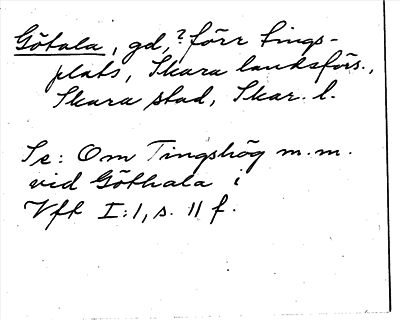 Götala, gd, ? förr tings-
plats, Skara landsförs.,
Skara stad, Skar. l.
Se: Om Tingshög m.m.
vid Göthala i
Vft I:1, s. 11 f.